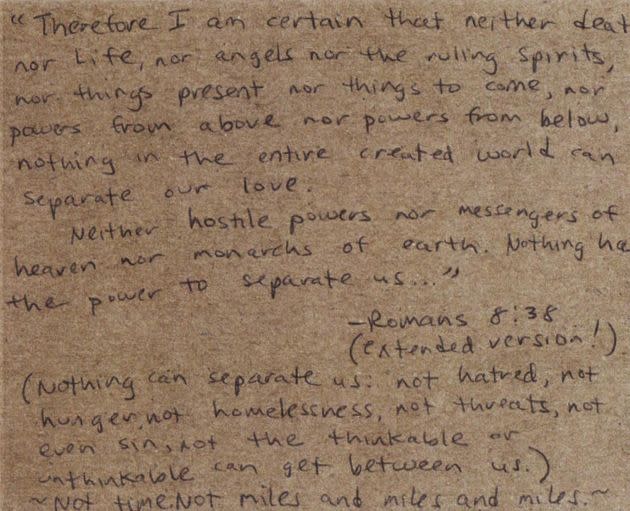 "Therefore I am certain that neither deat
nor Life, nor angels nor the ruling spirits,
nor things present nor things to come, nor
powers from above nor powers from below,
nothing in the entire created world can
separate our love.
Neither hostile powers nor messengers of
heaven nor monarchs of earth. Nothing ha
the power to separate us..."
-Romans 8:38
(extended version!)
(Nothing can separate us: not hatred, not
hunger, not homelessness, not threats, not
even sin, not the thinkable or
unthinkable can get between us.)
~Not time. Not miles and miles and miles.~